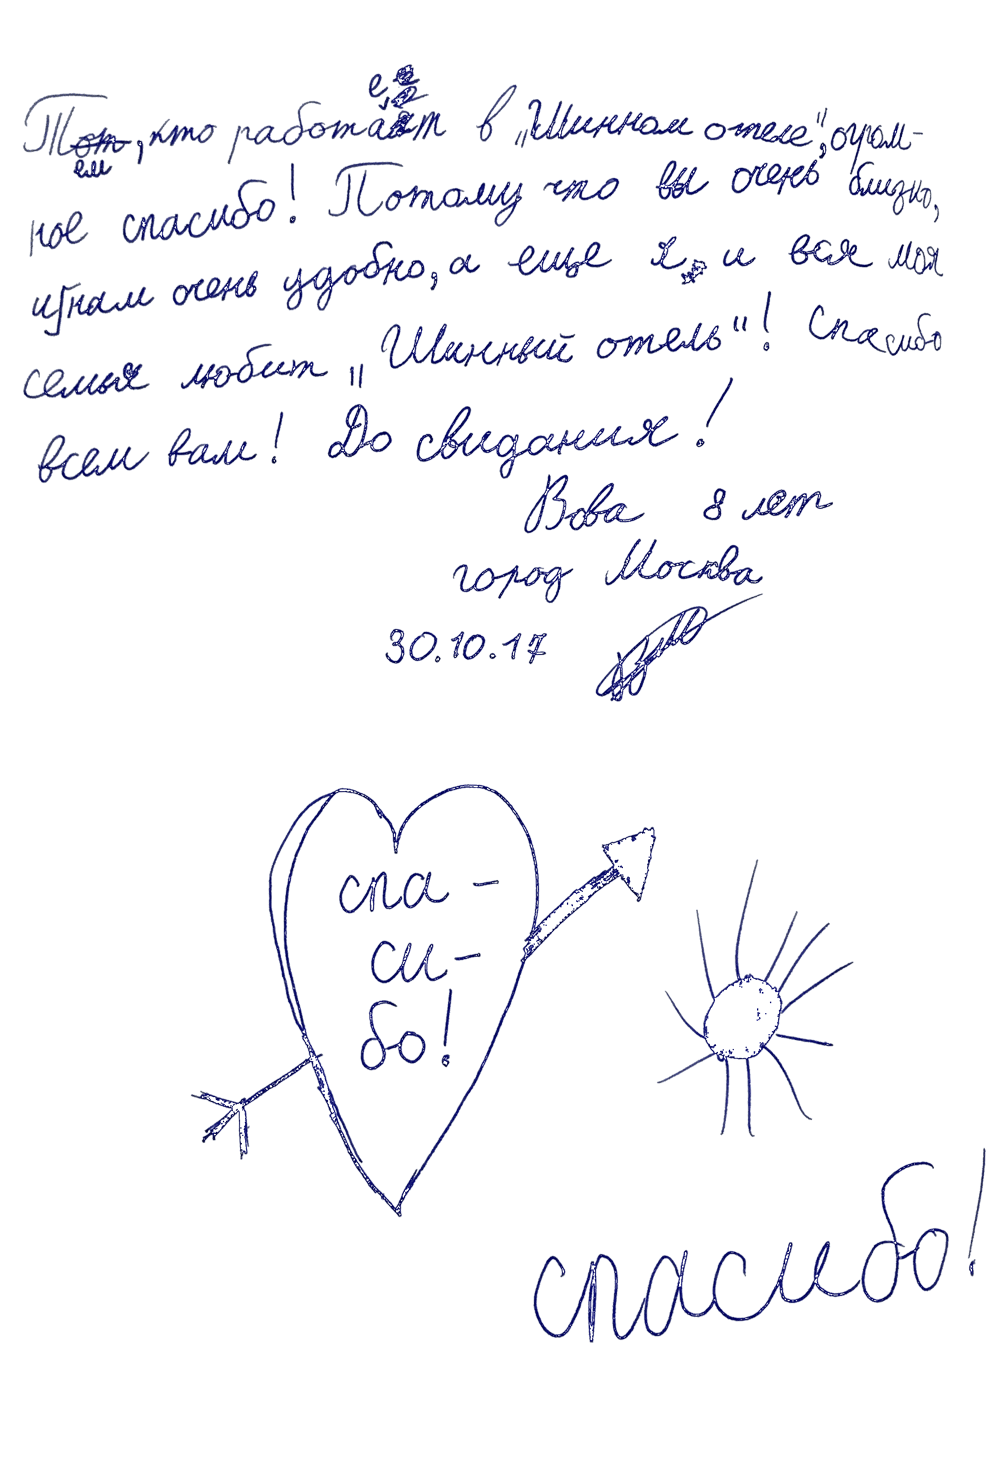 Тем, кто работает в „Шинном отеле", огром-
ное спасибо! Потому что вы очень близко,
и нам очень удобно, а еще я и вся моя
семья любит „Шинный отель"! Спасибо
всем вам! До свидания!
Вова 8 лет
город Москва
30.10.17
спа-
си-
бо!
спасибо!